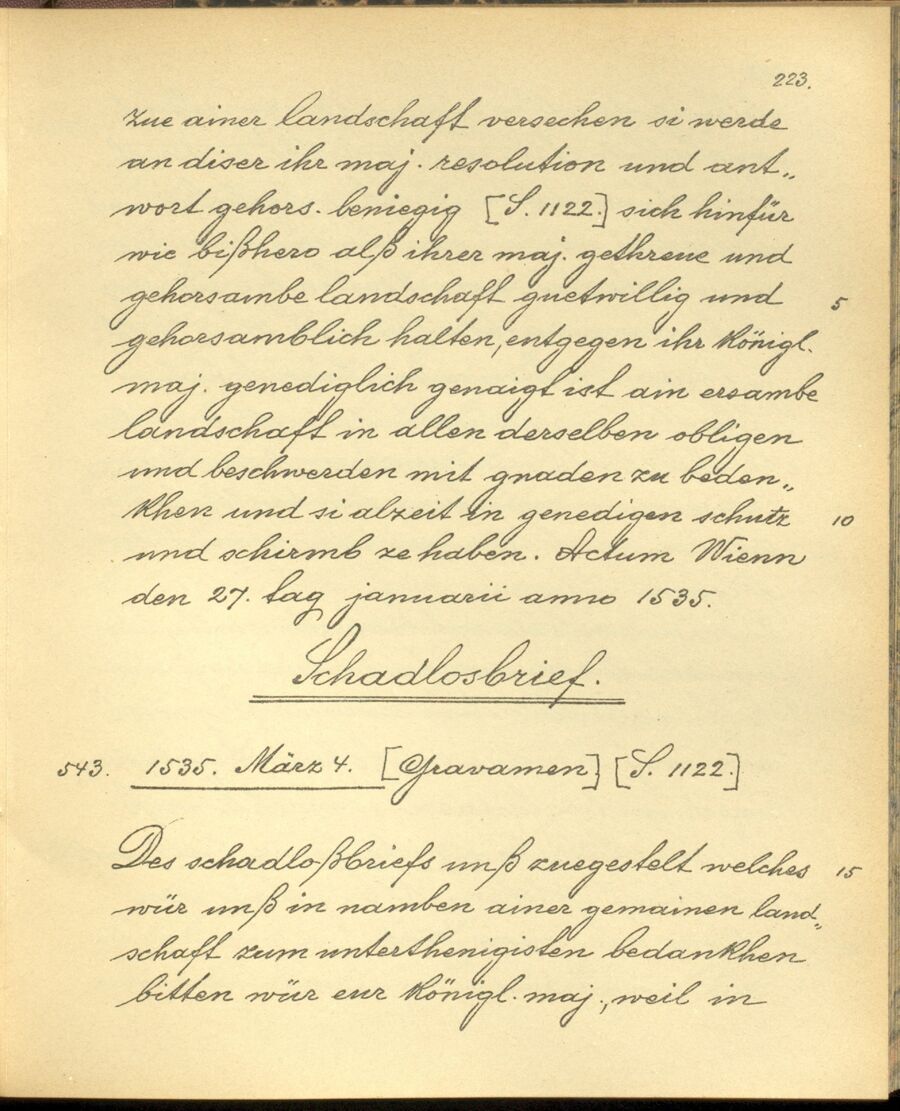 223.
zue ainer landschaft versechen si werde
an diser ihr maj. resolution und ant„
wort gehors. beniegig [S. 1122.] sich hinfür
wie bißhero alß ihrer maj. gethreue und
gehorsambe landschaft guetwillig und 5
gehorsamblich halten, entgegen ihr königl.
maj. genediglich genaigt ist ain ersambe
landschaft in allen derselben obligen
und beschwerden mit gnaden zu beden„
khen und si alzeit in genedigen schutz 10
und schirmb ze haben. Actum Wienn
den 27. tag januarii anno 1535.
Schadlosbrief.
543. 1535. März 4. [Gravamen] [S. 1122.]
Des schadloßbriefs unß zuegestelt welches 15
wür unß in namben ainer gemainen land„
schaft zum unterthenigisten bedankhen
bitten wür eur königl. maj., weil in